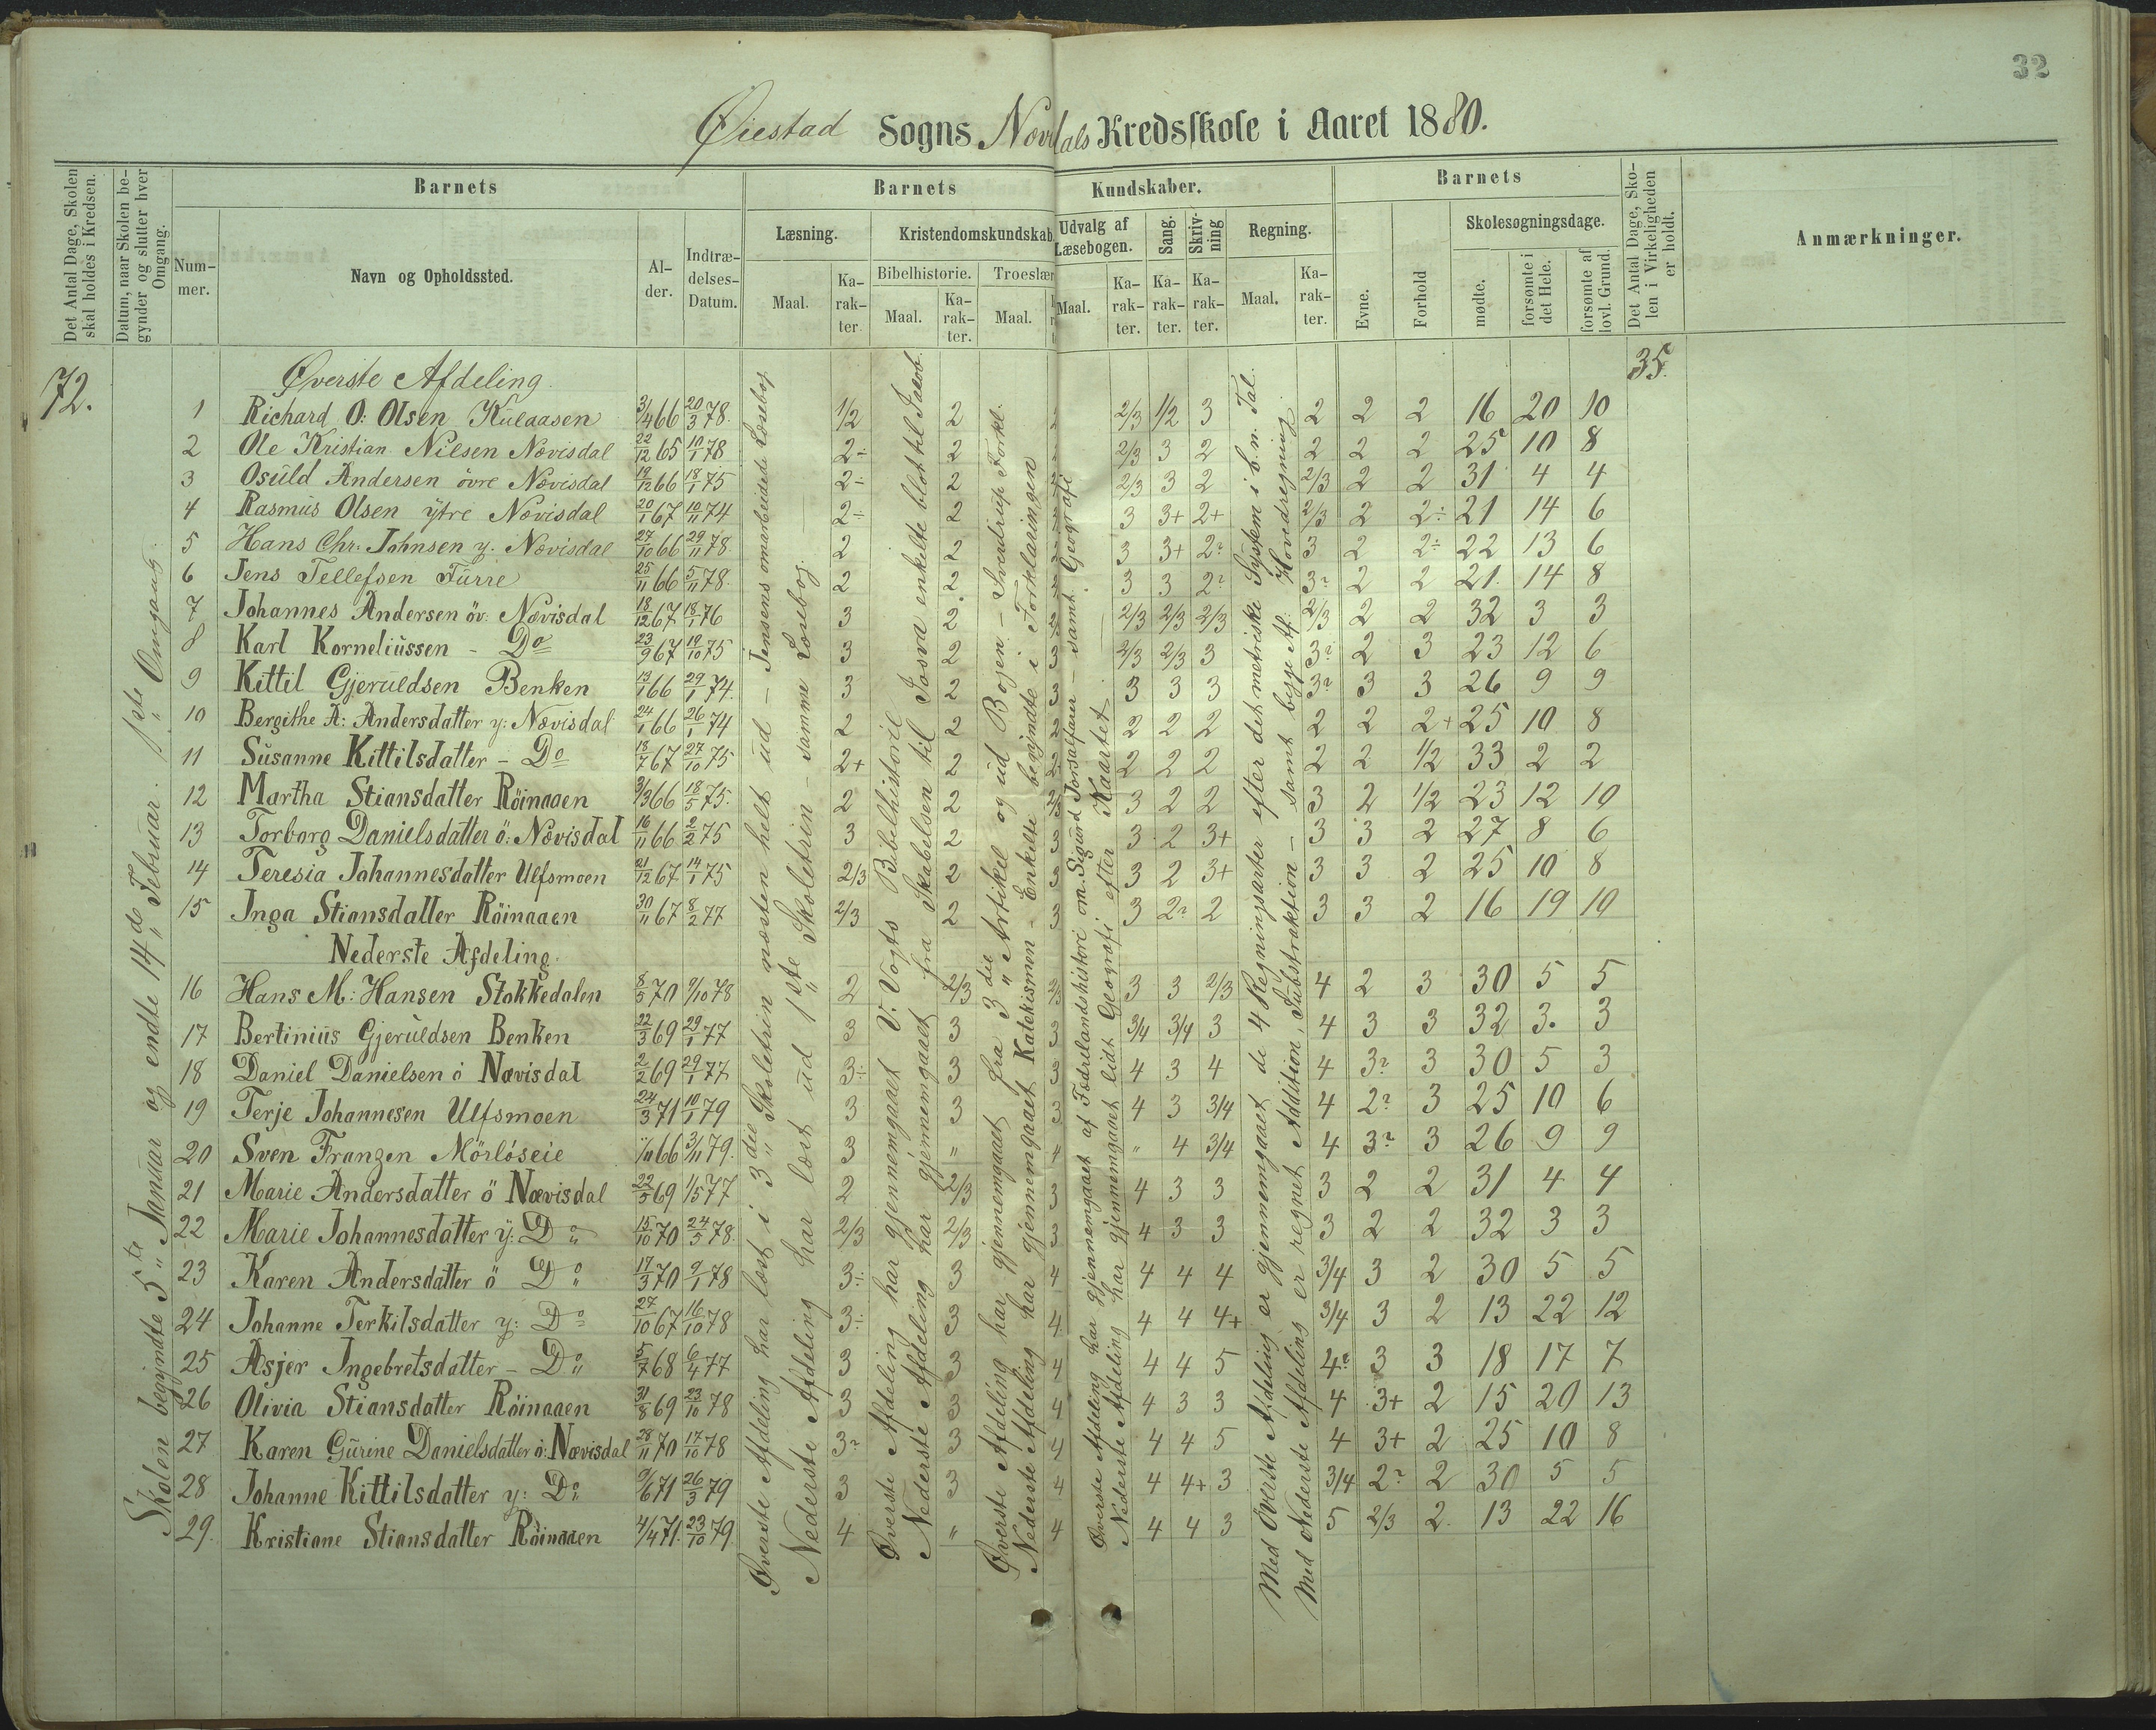 32
Øiestad Sogns Nævisdals Kredsskole i Aaret 1880.
Det Antal Dage, Skolen skal holdes i Kredsen.
Datum, naar Skolen begynder og slutter hver Omgang.
Barnets
Nummer.
Navn og Opholdssted.
Alder.
Indtrædelses-Datum.
Barnets Kundskaber.
Læsning.
Maal.
Karakter.
Kristendomskundskab.
Bibelhistorie.
Maal.
Karakter.
Troeslær
Maal.
Udvalg af Læsebogen.
Maal.
Karakter.
Sang.
Karakter.
Skrivning
Karakter.
Regning.
Maal.
Karakter.
Barnets
Evne.
Forhold
Skolesøgningsdage.
mødte.
forsømte i det Hele.
forsømte af lovl. Grund.
Det Antal Dage, Skolen i Virkeligheden er holdt.
Anmærkninger.
72.
35.
Skolen begyndte 5te Januar og endte 14de Februar. 1ste Omgang.
Øverste Afdeling har læst i 3die Skoletrin næsten helt ud – Jensens omarbeidede Læsebog
Nederste Afdeling har læst ud 1ste Skoletrin – samme Læsebog.
Øverste Afdeling har gjennemgaaet V. Vogts Bibelhistorie
Nederste Afdeling har gjennemgaaet fra Skabelsen til Josva enkelte blot til Jacob.
Øverste Afdeling har gjennemgaaet fra 3die Artikel og ud Bogen – Sverdrups Forkl.
Nederste Afdeling har gjennemgaaet Katekismen – Enkelte begyndte i Forklaringen
Øverste Afdeling har gjennemgaaet af Fædrelandshistori om Sigurd Jorsalfarer – samt Geografi
Nederste Afdeling har gjennemgaaet lidt Geografi efter Kaartet
Med Øverste Afdeling er gjennemgaaet de 4 Regningsarter efter det metriske System i b.n. Tal.
Med Nederste Afdeling er regnet Addition, Substraktion – samt begge Af: Hovedregning
Øverste Afdeling.
1 Richard O: Olsen Kulaasen 3/4 66 20/3 78. 1/2 2 2/3 1/2 3 2 2 2 16 20 10
2 Ole Kristian Nilsen Nævisdal 22/12 65 10/1 78 2÷ 2 2/3 3 2 2 2 2 25 10 8
3 Osuld Andersen övre Nævisdal 19/12 66 18/1 75 2÷ 2 2/3 3 2 2/3 2 2 31 4 4
4 Rasmus Olsen ytre Nævisdal 20/1 67 10/11 74 2÷ 2 3 3+ 2+ 2/3 2 2÷ 21 14 6
5 Hans Chr: Johnsen y. Nævisdal 27/10 66 29/11 78. 2 2 3 3+ 2? 3 2 2÷ 22 13 6
6 Jens Tellefsen Furre 25/11 66 5/11 78. 2 2 3 3 2? 3? 2 2 21 14 8
7 Johannes Andersen öv: Nævisdal 18/12 67 18/1 76 3 2 2/3 2/3 2/3 2/3 2 2 32 3 3
8 Karl Korneliussen – Do 23/9 67 19/10 75 3 2 3 2/3 2/3 3 3? 2 3 23 12 6
9 Kittil Gjeruldsen Benken 13/1 66 29/1 74. 3 2 3 3 3 3 3? 3 3 26 9 9
10 Bergithe A: Andersdatter y: Nævisdal 24/1 66 26/1 74 2 2 2 2 2 2 2 2 2+ 25 10 8
11 Susanne Kittilsdatter – Do 18/7 67 27/10 75 2+ 2 2 2 2 2 2 2 1/2 33 2 2
12 Martha Stiansdatter Röinaaen 3/3 66 18/5 75. 2 2 2/3 3 2 2 3 2 1/2 23 12 10
13 Torborg Danielsdatter ö: Nævisdal 16/11 66 2/2 75 3 2 3 3 2 3+ 3 3 2 27 8 6
14 Teresia Johannesdatter Ulfsmoen 21/12 67 14/1 75 2/3 2 3 3 2 3+ 3 3 2 25 10 8
15 Inga Stiansdatter Röinaaen 30/11 67 8/2 77 2/3 2 3 3 2? 2 3 3 2 16 19 10
Nederste Afdeling.
16 Hans M: Hansen Stokkedalen 8/5 70 9/10 78 2 2/3 2/3 3 3 2/3 4 2 3 30 5 5
17 Bertinius Gjeruldsen Benken 22/3 69 29/1 77 3 3 3 3/4 3/4 3 4 3 3 32 3. 3
18 Daniel Danielsen ö Nævisdal 2/2 69 29/1 77 3÷ 3 3 4 3 4 4 3? 3 30 5 3
19 Terje Johannesen Ulfsmoen 24/3 71 10/1 79 3 3 3 4 3 3/4 4 2? 3 25 10 6
20 Sven Franzen Mörlöseie 1/11 66 3/11 79. 3 " 4 " 4 3/4 4 3? 3 26 9 9
21 Marie Andersdatter ö Nævisdal 22/5 69 1/5 77 2 2/3 3 4 3 3 3 2 2 31 4 4
22 Marie Johannesdatter y: Do 15/10 70 24/5 78. 2/3 2/3 3 4 3 3 3 2 2 32 3 3
23 Karen Andersdatter ö Do 17/3 70 9/1 78 3÷ 3 4 4 4 4 3/4 3 2 30 5 5
24 Johanne Terkilsdatter y: Do 27/10 67 16/10 78 3÷ 3 4 4 4 4+ 3/4 3 2 13 22 12
25 Asjer Ingebretsdatter – Do 5/7 68 6/4 77 3 3 4 4 4 5 4? 3 3 18 17 7
26 Olivia Stiansdatter Röinaaen 31/8 69 23/10 78 3 3 4 4 3 3 4 3+ 2 15 20 13
27 Karen Gurine Danielsdatter ö: Nævisdal 28/11 70 17/10 78 3? 3 4 4 4 5 4 3+ 2 25 10 8
28 Johanne Kittilsdatter y: Do 9/6 71 26/3 79 3 3 4 4 4+ 3 3/4 2? 2 30 5 5
29. Kristiane Stiansdatter Röinaaen 4/4 71. 23/10 79. 4 " 4 4 4 3 5 2/3 2. 13 22 16